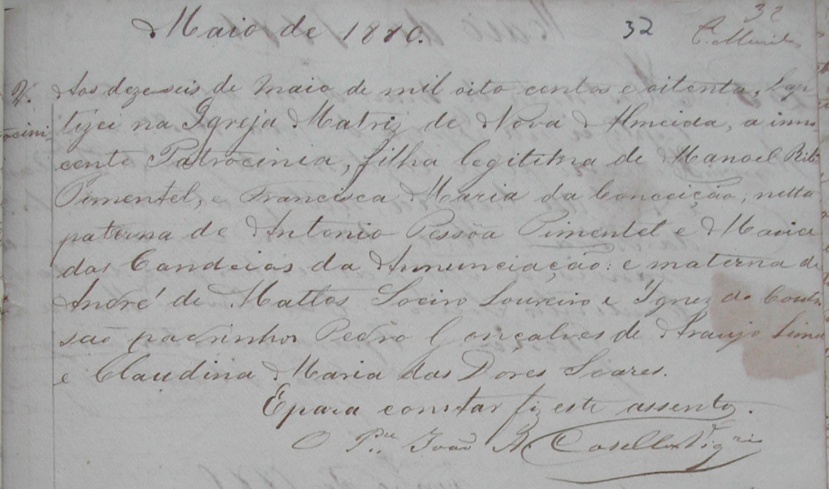 Maio de 1880. 32 32
V. Aos dezeseis de Maio de mil oito centos e oitenta, bap
tizei na Igreja Matriz de Nova Almeida, a inno
cente Patrocinia, filha legitima de Manoel Rib.
Pimentel, e Francisca Maria da Conceição, netta
paterna de Antonio Pessôa Pimentel e Maria
das Candeias da Annunciação: e materna de
André de Mattos Loureiro e Ignez da
são padrinhos Pedro Gonçalves de Araujo Lima
e Claudina Maria das Dores Soares.
E para constar fiz este assento.
O P.e João